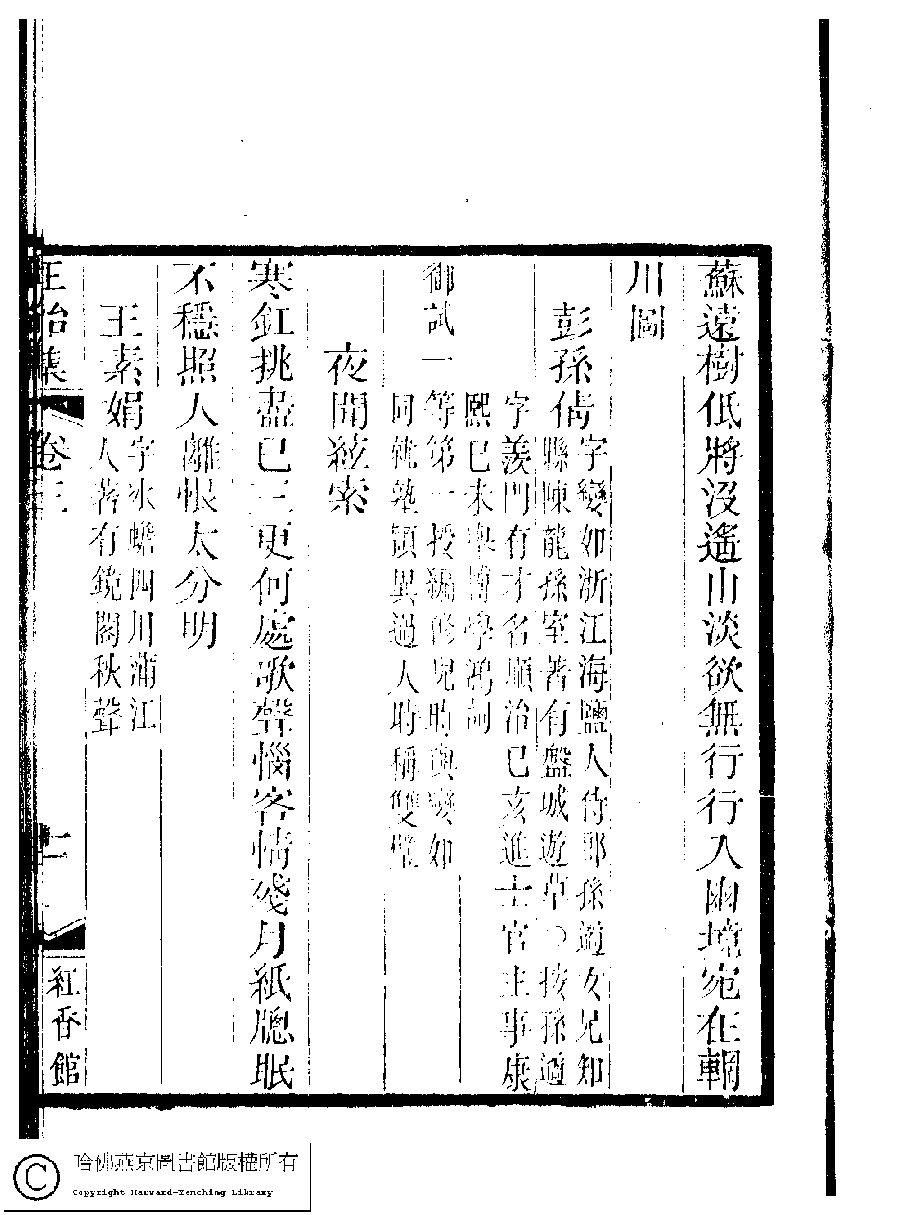 蘇遠樹低將沒遙山淡欲無行行入幽境宛在輞
川圖
彭孫倩
字變如浙江海鹽人侍郎孫遹女兄知
縣陳龍孫室著有盤城遊草〇按孫遹
字羨門有才名順治己亥進士官主事康
熙己未舉博學鴻詞
御試一等第一授編修兒時與變如
同就塾頴異過人時稱雙璧
夜聞絃索
寒釭挑盡已三更何處歌聲惱客情殘月紙牕眠
不穩照人離恨太分明
王素娟
字氷蟾四川蒲江
人著有鏡閣秋聲
卷三
紅香館
哈佛燕京圖書館版權所有
Copyright Harvard-Yenching Library